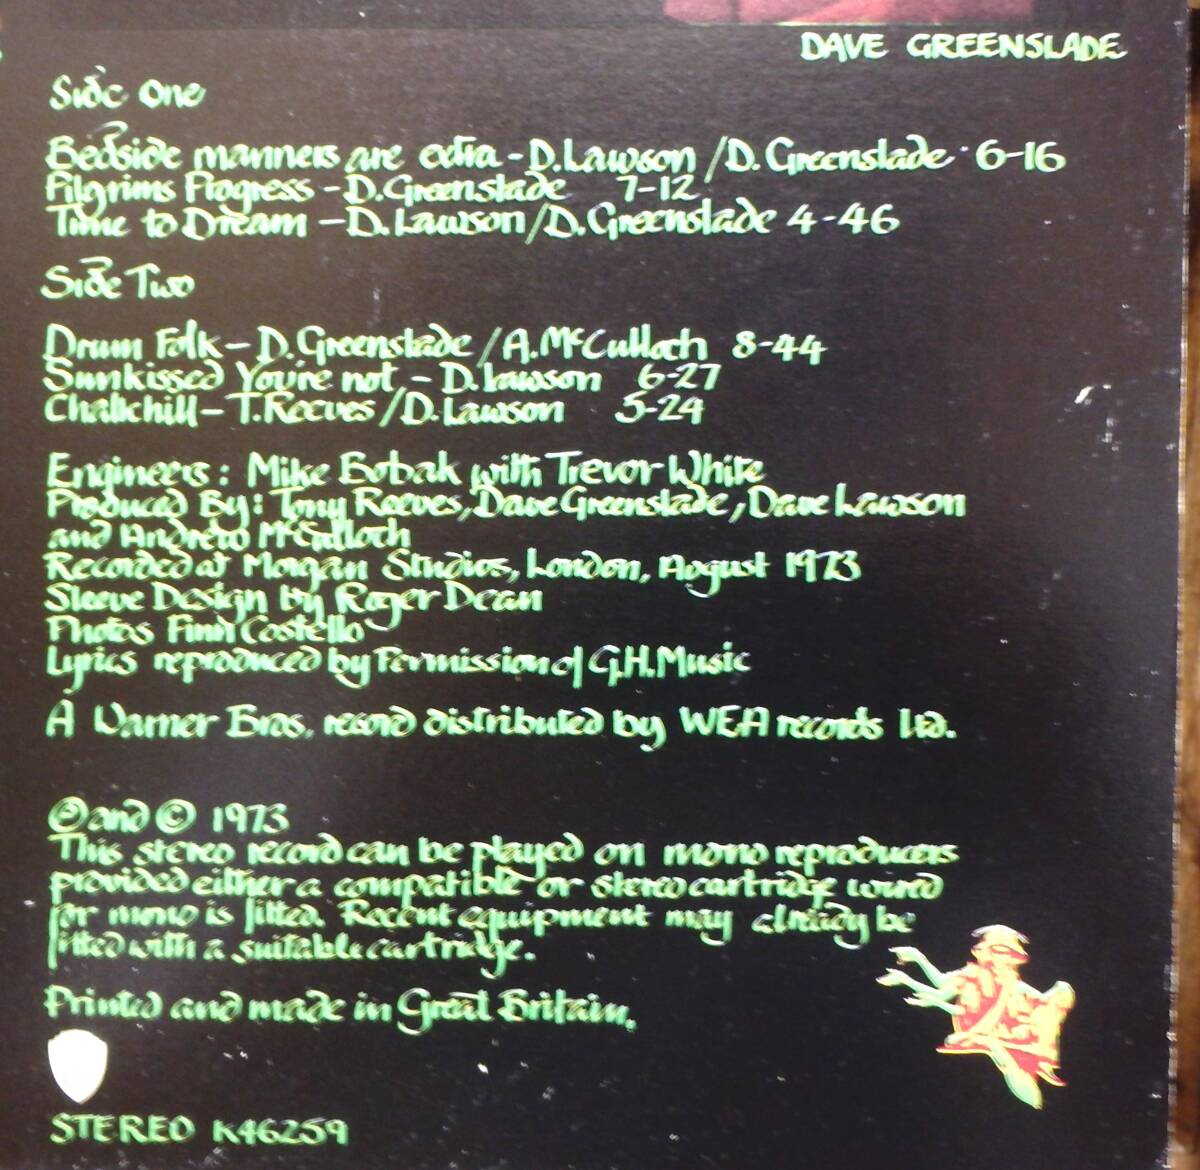 DAVE GREENSLADE
Side One
Bedside manners are extra - D. Lawson / D. Greenslade · 6-16
Pilgrims Progress - D. Greenslade 7-12
Time to Dream - D. Lawson / D. Greenslade 4-46
Side Two
Drum Folk - D. Greenslade / A. McCulloch 8-44
Sunkissed You're not - D. Lawson 6-27
Chalkhill - T. Reeves / D. Lawson 5-24
Engineers: Mike Bobak with Trevor White
Produced By: Tony Reeves, Dave Greenslade, Dave Lawson
and Andrew McCulloch
Recorded at Morgan Studios, London, August 1973
Sleeve Design by Roger Dean
Photos Finn Costello
Lyrics reproduced by Permission of G.H. Music
A Warner Bros. record distributed by WEA records Ltd.
℗ and © 1973
This stereo record can be played on mono reproducers
provided either a compatible or stereo cartridge wired
for mono is fitted. Recent equipment may already be
fitted with a suitable cartridge.
Printed and made in Great Britain.
STEREO K46259